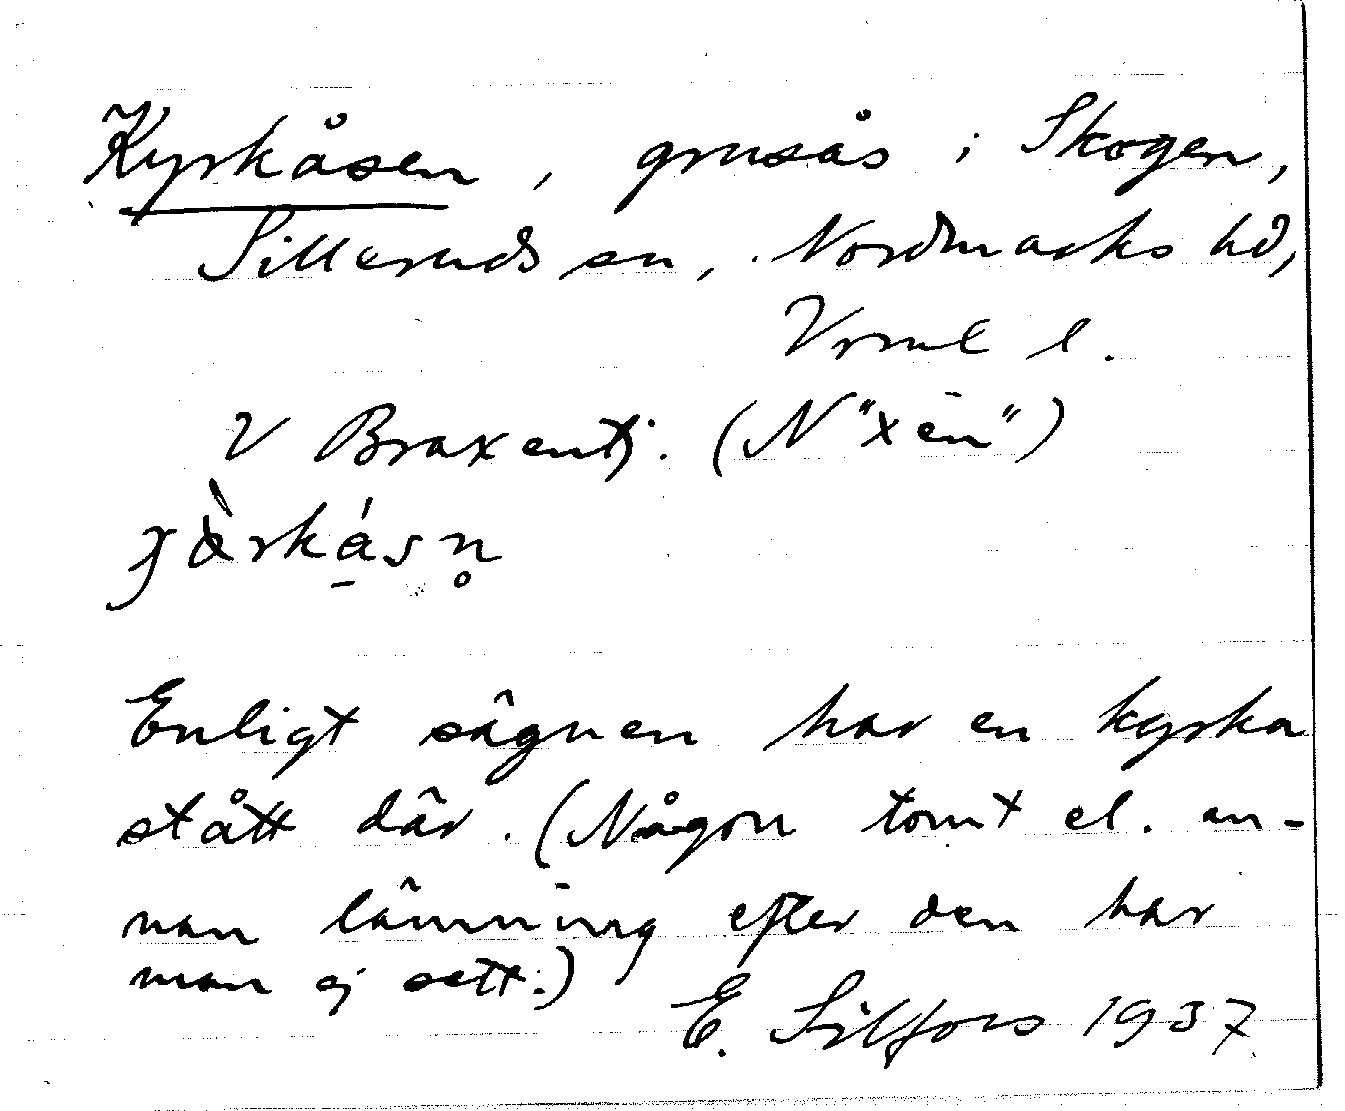 Kyrkåsen, grusås i Skogen,
Silleruds sn, Nordmarks hd,
Vrml l.
V Braxentj. (N "x en")
Enligt sägnen har en kyrka
stått där. (Någon tomt el. an-
nan lämning efter den har
man ej sett.)
E. Silfors 1937